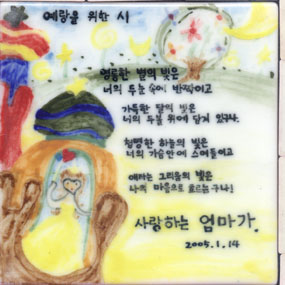 예랑을 위한 시
영롱한 별의 빛은
너의 두눈 속에 반짝이고
가득한 달의 빛은
너의 두볼 위에 담겨 있구나.
청명한 하늘의 빛은
너의 가슴안에 스며들이고
애타는 그리움의 빛은
나의 마음으로 흐르는구나!
사랑하는 엄마가.
2005.1.14